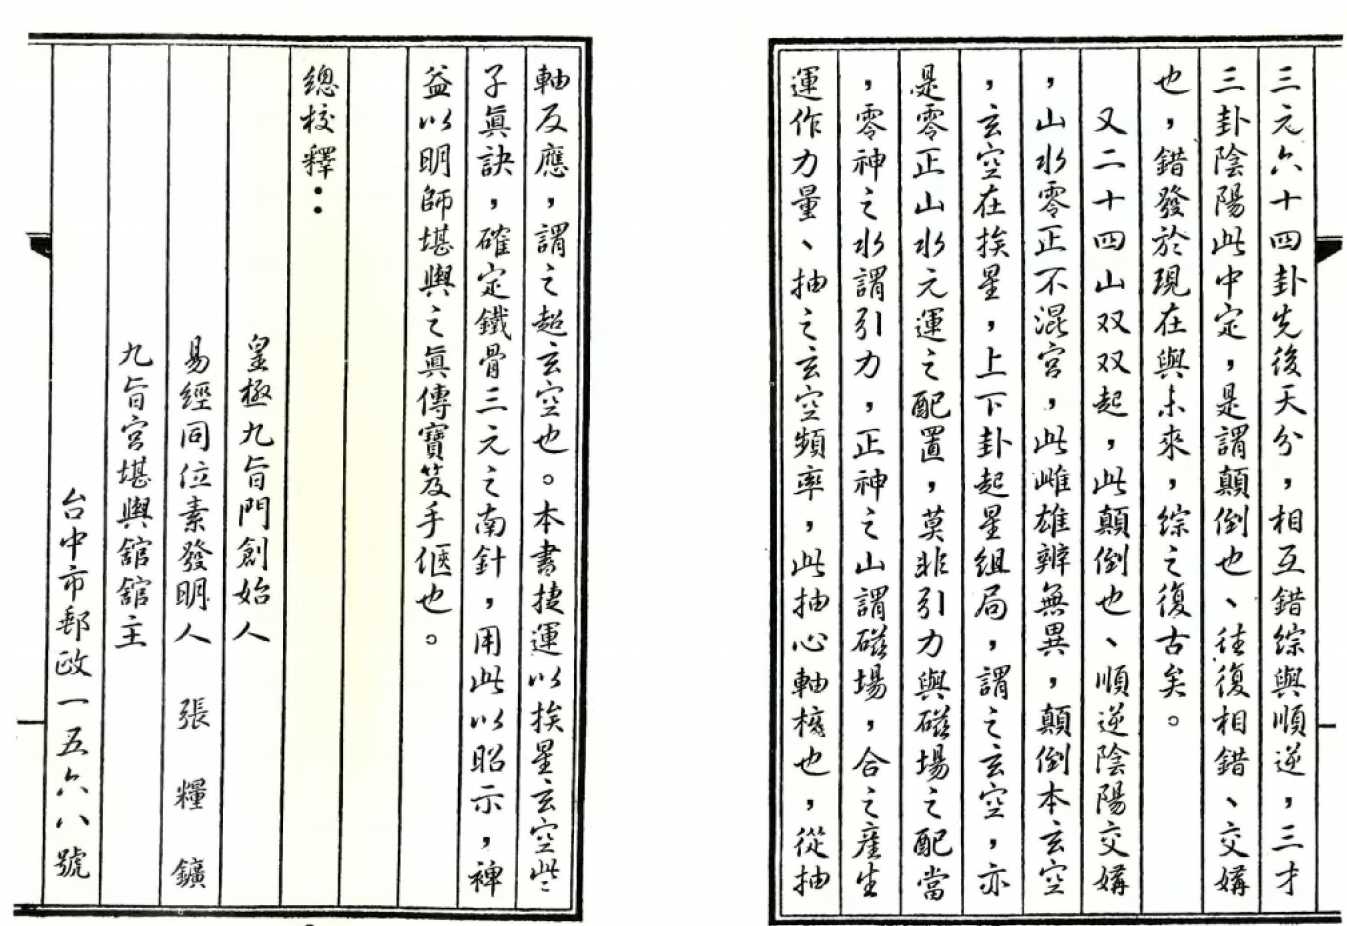 三元六十四卦先後天分，相互錯綜與順逆，三才
三卦陰陽此中定，是謂顛倒也、往復相錯、交媾
也，錯發於現在與未來，綜之復古矣。
又二十四山双双起，此顛倒也、順逆陰陽交媾
，山水零正不混宮，此雌雄辨無異，顛倒本玄空
，玄空在挨星，上下卦起星組局，謂之玄空，亦
是零正山水元運之配置，莫非引力與磁場之配當
，零神之水謂引力，正神之山謂磁場，合之產生
運作力量、抽之玄空頻率，此抽心軸樞也，從抽
軸反應，謂之超玄空也。本書捷運以挨星玄空些
子眞訣，確定鐵骨三元之南針，用此以昭示，裨
益以明師堪輿之眞傳寶笈手偃也。
總校釋：
皇極九旨門創始人
易經同位素發明人 張 糧 鑛
九旨宮堪輿舘舘主
台中市郵政一五六八號